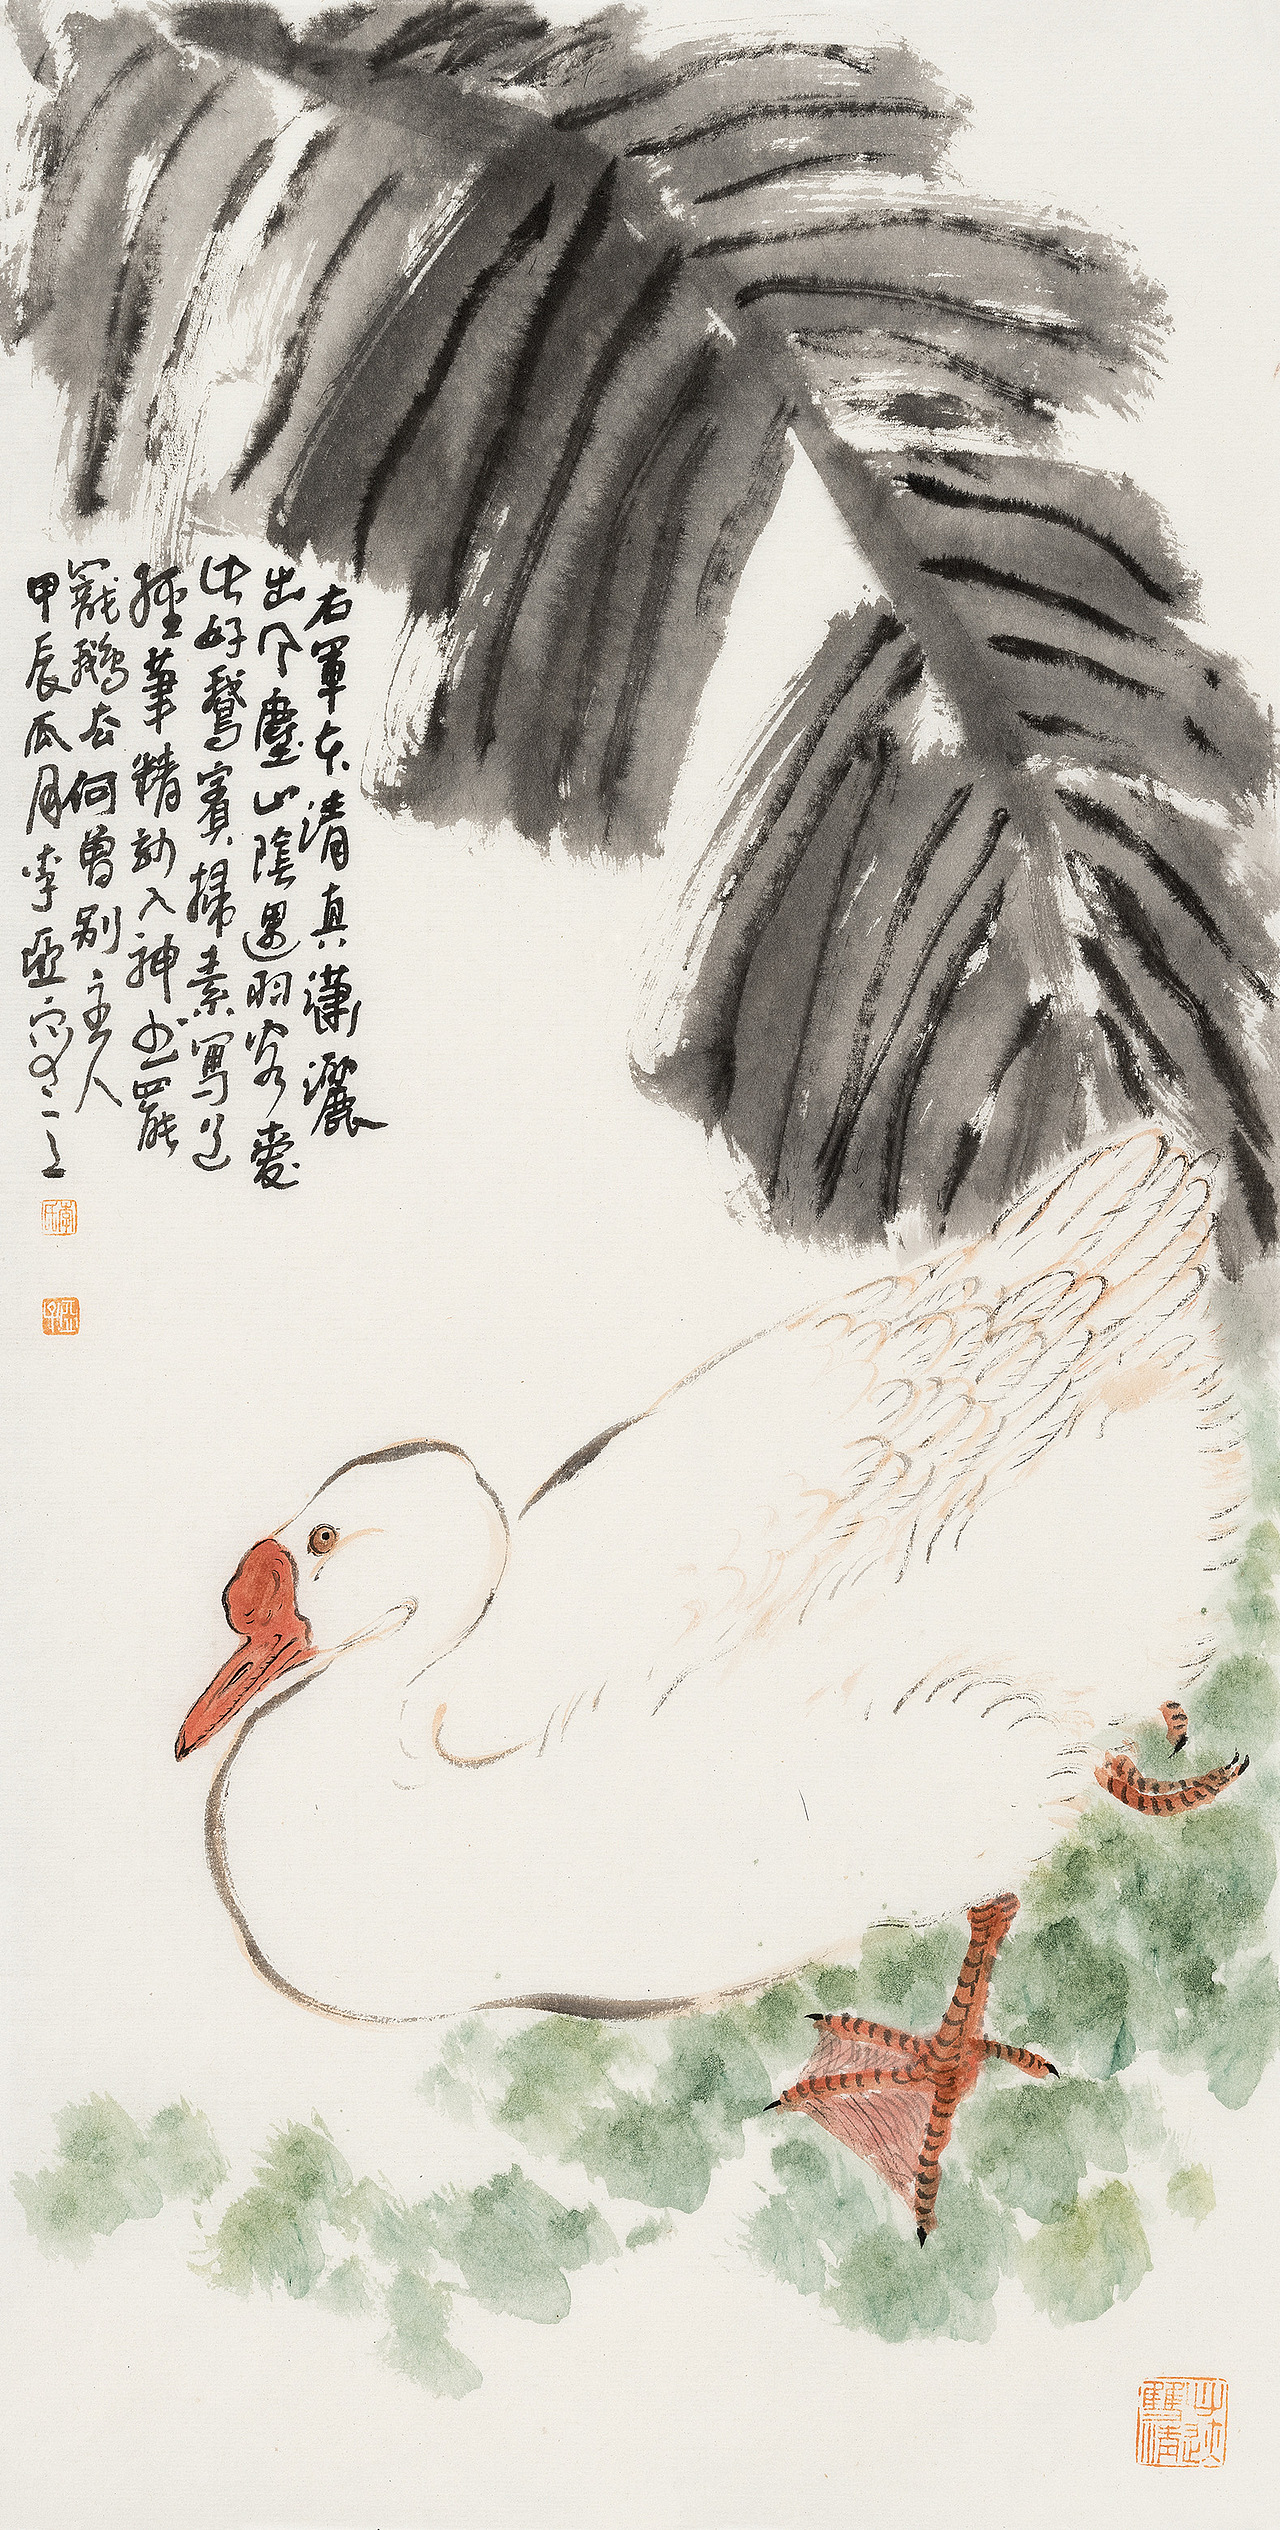 右軍本清真瀟灑
出風塵山陰遇羽客愛
此好鵝賓掃素寫道
經筆精妙入神書罷
籠鵝去何曾別主人
甲辰瓜月李亞
李氏
心迹雙清